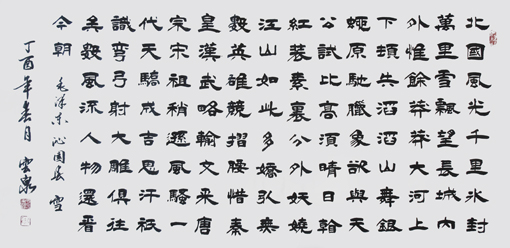 北國風光千里冰封
萬里雪飄望長城內
外惟餘莽莽大河上
下頓失滔滔山舞銀
蛇原馳臘象欲與天
公試比高須晴日看
紅裝素裹分外妖嬈
江山如此多嬌引無
數英雄競摺腰惜秦
皇漢武略輸文采唐
宗宋祖稍遜風騷一
代天驕成吉思汗祇
識彎弓射大雕俱往
矣數風流人物還看
今朝
毛澤東 沁園春 雪
丁酉年春月 雲泉